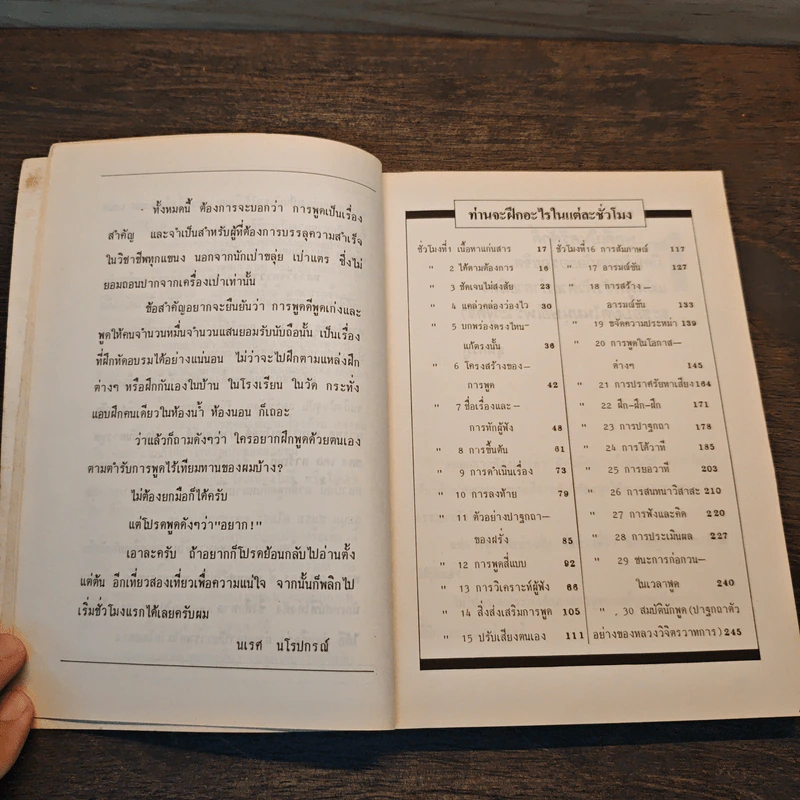 ทั้งหมดนี้ ต้องการจะบอกว่า การพูดเป็นเรื่อง
สำคัญ และจำเป็นสำหรับผู้ที่ต้องการบรรลุความสำเร็จ
ในวิชาชีพทุกแขนง นอกจากนักเป่าขลุ่ย เป่าแตร ซึ่งไม่
ยอมถอนปากจากเครื่องเป่าเท่านั้น
ข้อสำคัญอยากจะยืนยันว่า การพูดดีพูดเก่งและ
พูดให้คนจำนวนหมื่นจำนวนแสนยอมรับนับถือนั้น เป็นเรื่อง
ที่ฝึกหัดอบรมได้อย่างแน่นอน ไม่ว่าจะไปฝึกตามแหล่งฝึก
ต่างๆ หรือฝึกกันเองในบ้าน ในโรงเรียน ในวัด กระทั่ง
แอบฝึกคนเดียวในห้องน้ำ ห้องนอน ก็เถอะ
ว่าแล้วก็ถามดังๆว่า ใครอยากฝึกพูดด้วยตนเอง
ตามตำรับการพูดไร้เทียมทานของผมบ้าง?
ไม่ต้องยกมือก็ได้ครับ
แต่โปรดพูดดังๆว่า"อยาก!"
เอาละครับ ถ้าอยากก็โปรดย้อนกลับไปอ่านตั้ง
แต่ต้น อีกเที่ยวสองเที่ยวเพื่อความแน่ใจ จากนั้นก็พลิกไป
เริ่มชั่วโมงแรกได้เลยครับผม
นเรศ นโรปกรณ์
ท่านจะฝึกอะไรในแต่ละชั่วโมง
ชั่วโมงที่1 เนื้อหาแก่นสาร 17
" 2 ได้ตามต้องการ 16
" 3 ชัดเจนไม่สงสัย 23
" 4 แคล่วคล่องว่องไว 30
" 5 บกพร่องตรงไหน-
แก้ตรงนั้น 36
" 6 โครงสร้างของ-
การพูด 42
" 7 ชื่อเรื่องและ-
การทักผู้ฟัง 48
" 8 การขึ้นต้น 61
" 9 การดำเนินเรื่อง 73
" 10 การลงท้าย 79
" 11 ตัวอย่างปาฐกถา-
ของฝรั่ง 85
" 12 การพูดสี่แบบ 92
" 13 การวิเคราะห์ผู้ฟัง 66
" 14 สิ่งส่งเสริมการพูด 105
" 15 ปรับเสียงตนเอง 111
ชั่วโมงที่16 การสัมภาษณ์ 117
" 17 อารมณ์ขัน 127
" 18 การสร้าง-
อารมณ์ขัน 133
" 19 ขจัดความประหม่า 139
" 20 การพูดในโอกาส-
ต่างๆ 145
" 21 การปราศรัยหาเสียง 164
" 22 ฝึก-ฝึก-ฝึก 171
" 23 การปาฐกถา 178
" 24 การโต้วาที 185
" 25 การยอวาที 203
" 26 การสนทนาวิสาสะ 210
" 27 การฟังและคิด 220
" 28 การประเมินผล 227
" 29 ชนะการก่อกวน-
ในเวลาพูด 240
" 30 สมบัตินักพูด(ปาฐกถาตัว
อย่างของหลวงวิจิตรวาทการ) 245